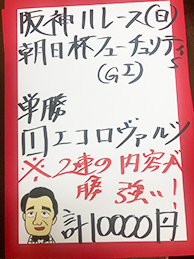 阪神11レース(日)
朝日杯フューチュリティS
(GI)
単勝
1 エコロヴァルツ
※2連勝の内容が
強い!
計10000円